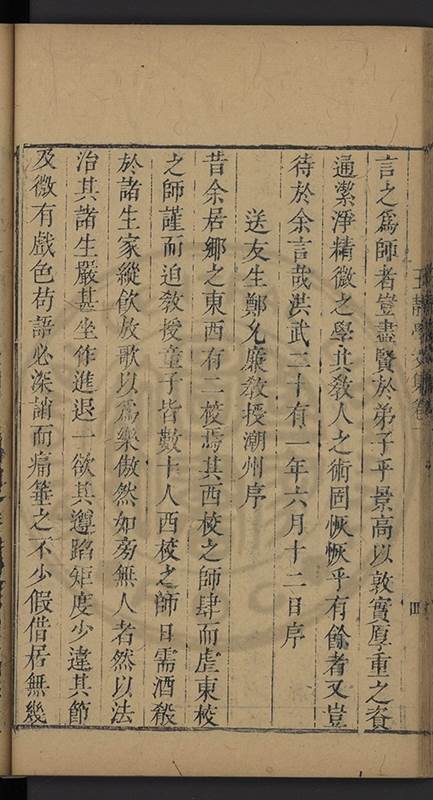 言之爲師者豈盡賢於弟子乎景高以敦實厚重之資
通潔淨精微之學其敎人之術固恢恢乎有餘者又豈
待於余言哉洪武二十有一年六月十二日序
送友生鄭允廉敎授潮州序
昔余居鄉之東西有二校焉其西校之師肆而虐東校
之師謹而迫敎授童子皆數十人西校之師日需酒殽
於諸生家縱飲放歌以爲樂傲然如旁無人者然以法
治其諸生嚴甚坐作進退一欲其遵蹈矩度少違其節
及微有戲色苟語必深誚而痛箠之不少假借居無幾